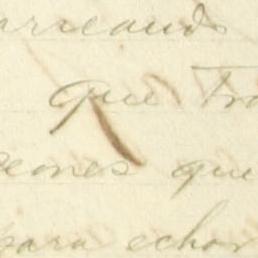 arreando
que tra
seones que
para echar